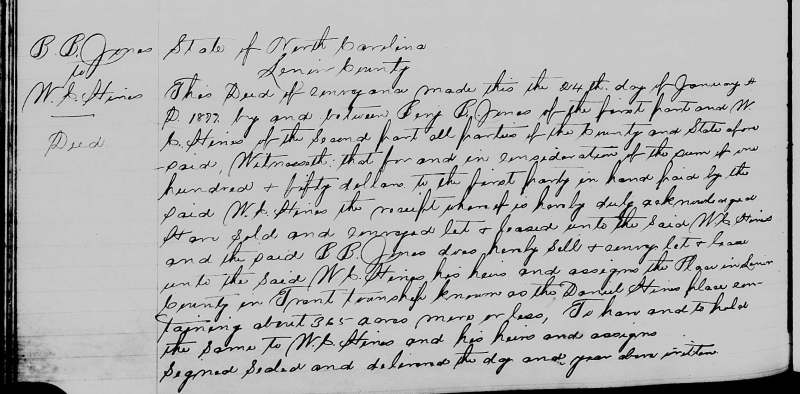 B. B. Jones
to
W. C. Hines
Deed
State of North Carolina
Lenoir County
This Deed of conveyance made this the 24th. day of January A
D. 1877. by and between Benj B. Jones of the first part and W
C. Hines of the Second part all parties of the County and State afore
said, Witnesseth: that for and in consideration of the sum of one
hundred & fifty dollars to the first party in hand paid by the
said W. C. Hines the receipt whereof is hereby duly acknowledged
Have Sold and conveyed let & leased unto the Said W C Hines
and the said B B. Jones does hereby Sell & convey let & lease
unto the Said W. C. Hines, his heirs and assigns the Place in Lenoir
County in Trent township known as the Daniel Hines place con-
taining about 365 acres more or less, To have and to hold
the Same to W. C Hines and his heirs and assigns
Segned Sealed and delivered the day and year above written